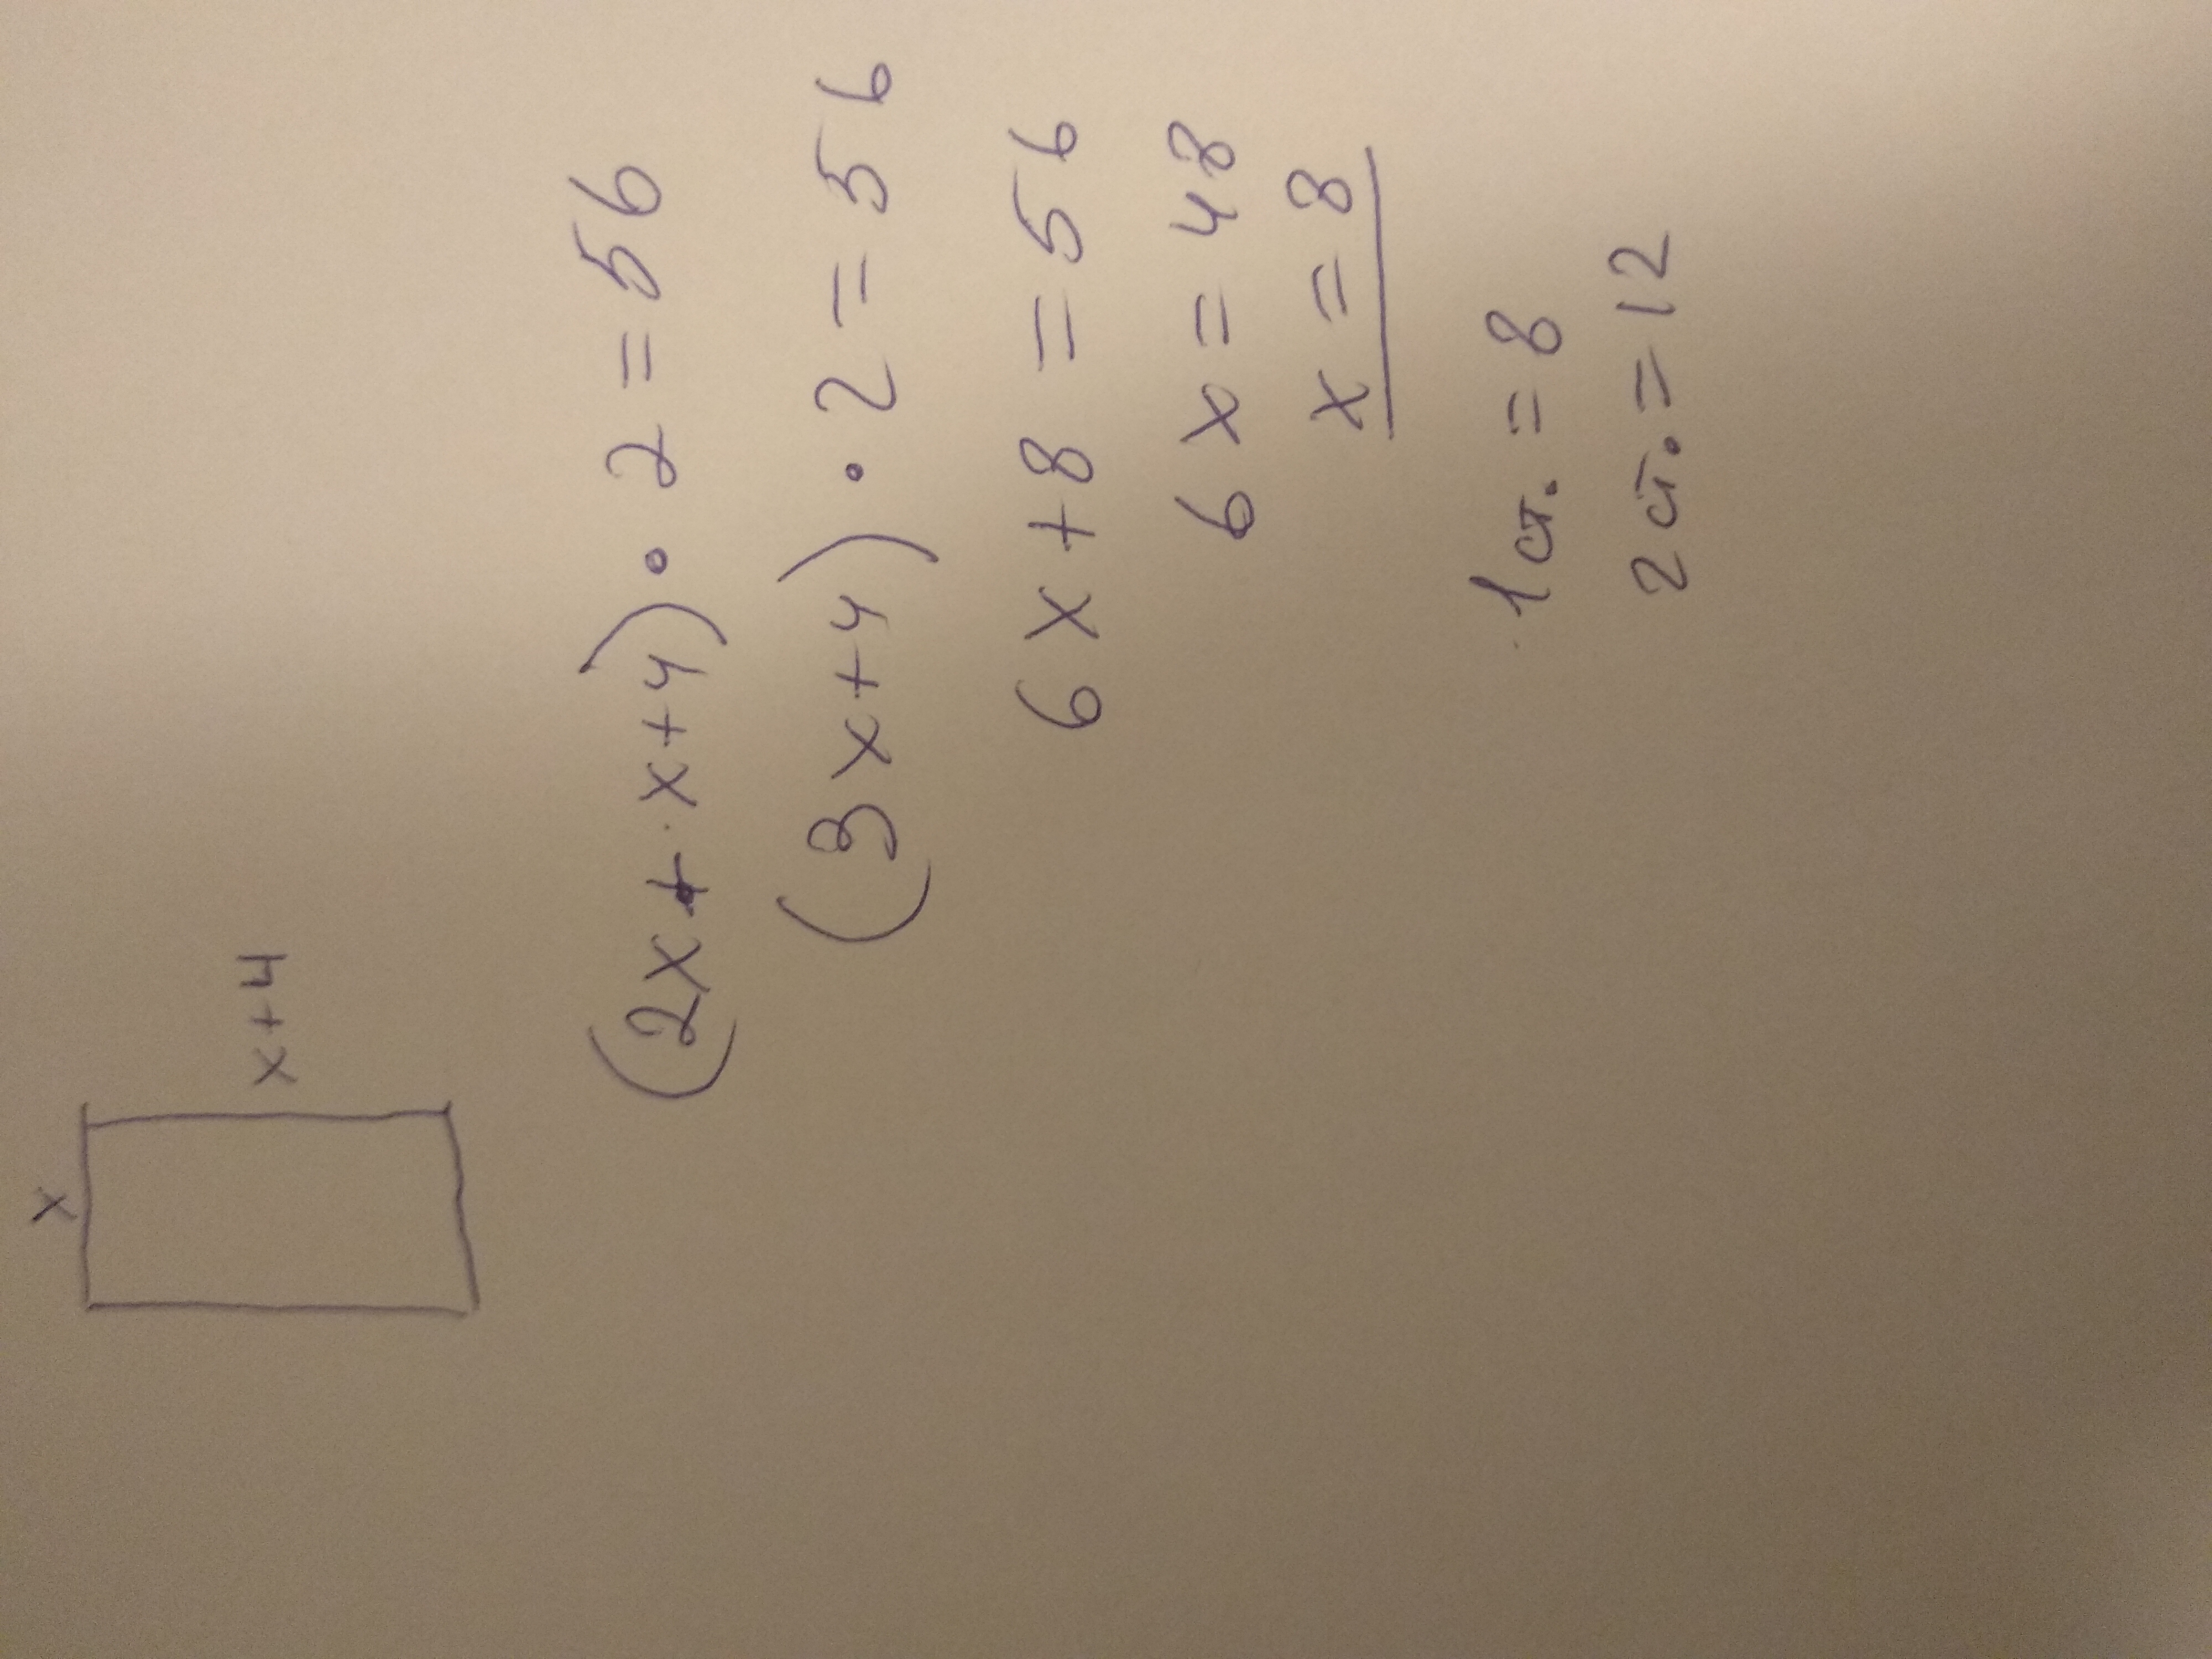 x
x+4
(2x+x+4)·2=56
(3x+4)·2=56
6x+8=56
6x=48
x=8
1 ст.=8
2 ст.=12